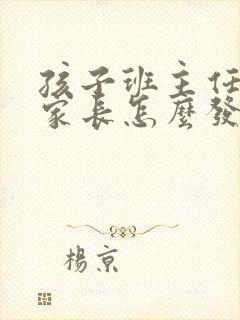 孩子班主任
家長怎麼發
楊京